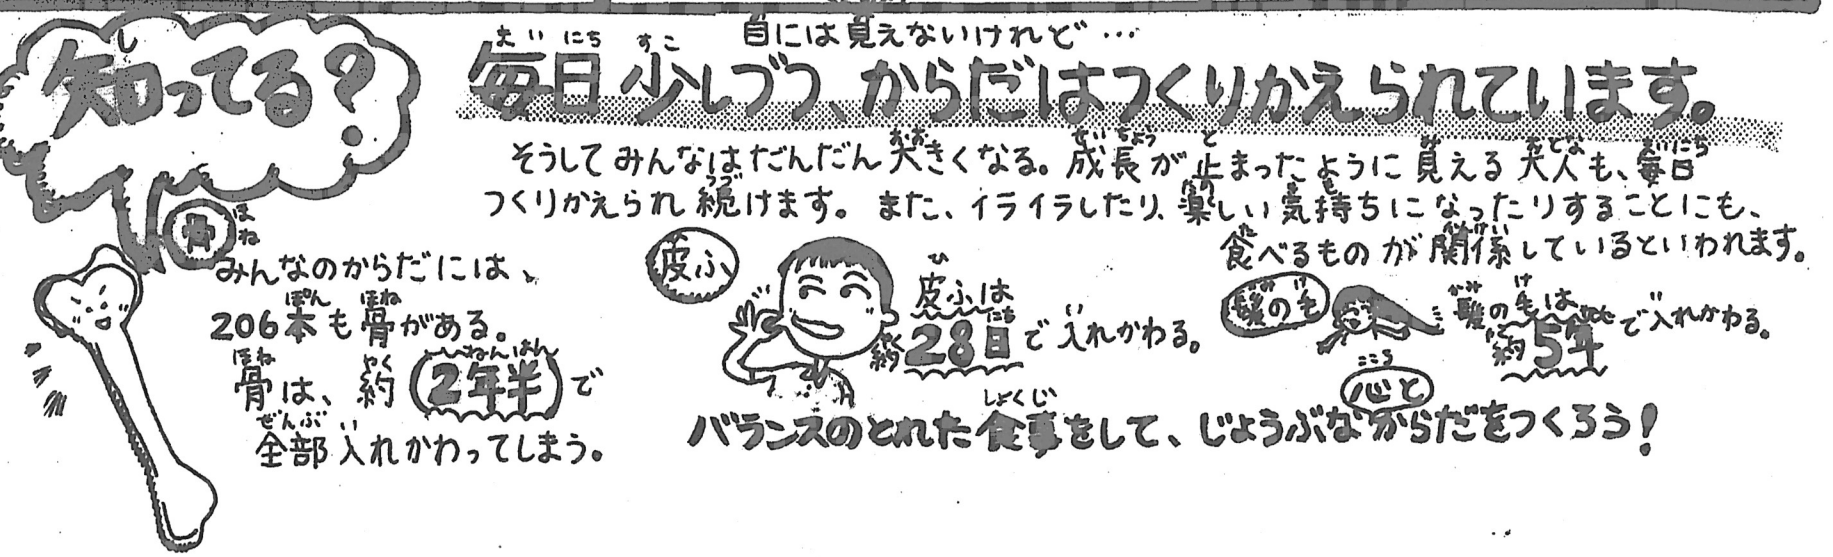 知ってる?
目には見えないけれど…
毎日少しづつ、からだはつくりかえられています。
そうしてみんなはだんだん大きくなる。成長が止まったように見える大人も、毎日
つくりかえられ続けます。また、イライラしたり、楽しい気持ちになったりすることにも、
食べるものが関係しているといわれます。
骨
みんなのからだには、
206本も骨がある。
骨は、約2年半で
全部入れかわってしまう。
皮ふ
皮ふは
約28日で入れかわる。
髪の毛
髪の毛は
約5年で入れかわる。
バランスのとれた食事をして、じょうぶな心とからだをつくろう!